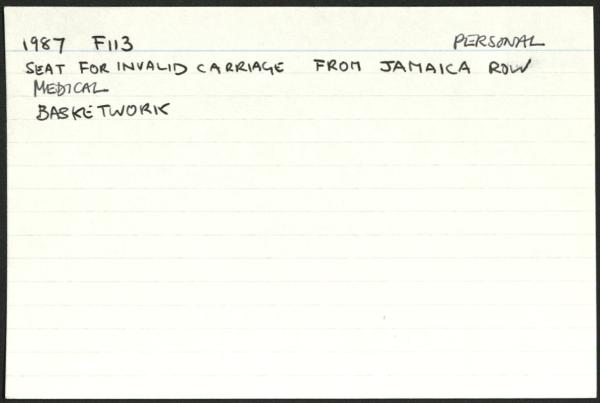 1987 F113 PERSONAL
SEAT FOR INVALID CARRIAGE FROM JAMAICA ROW
MEDICAL
BASKETWORK